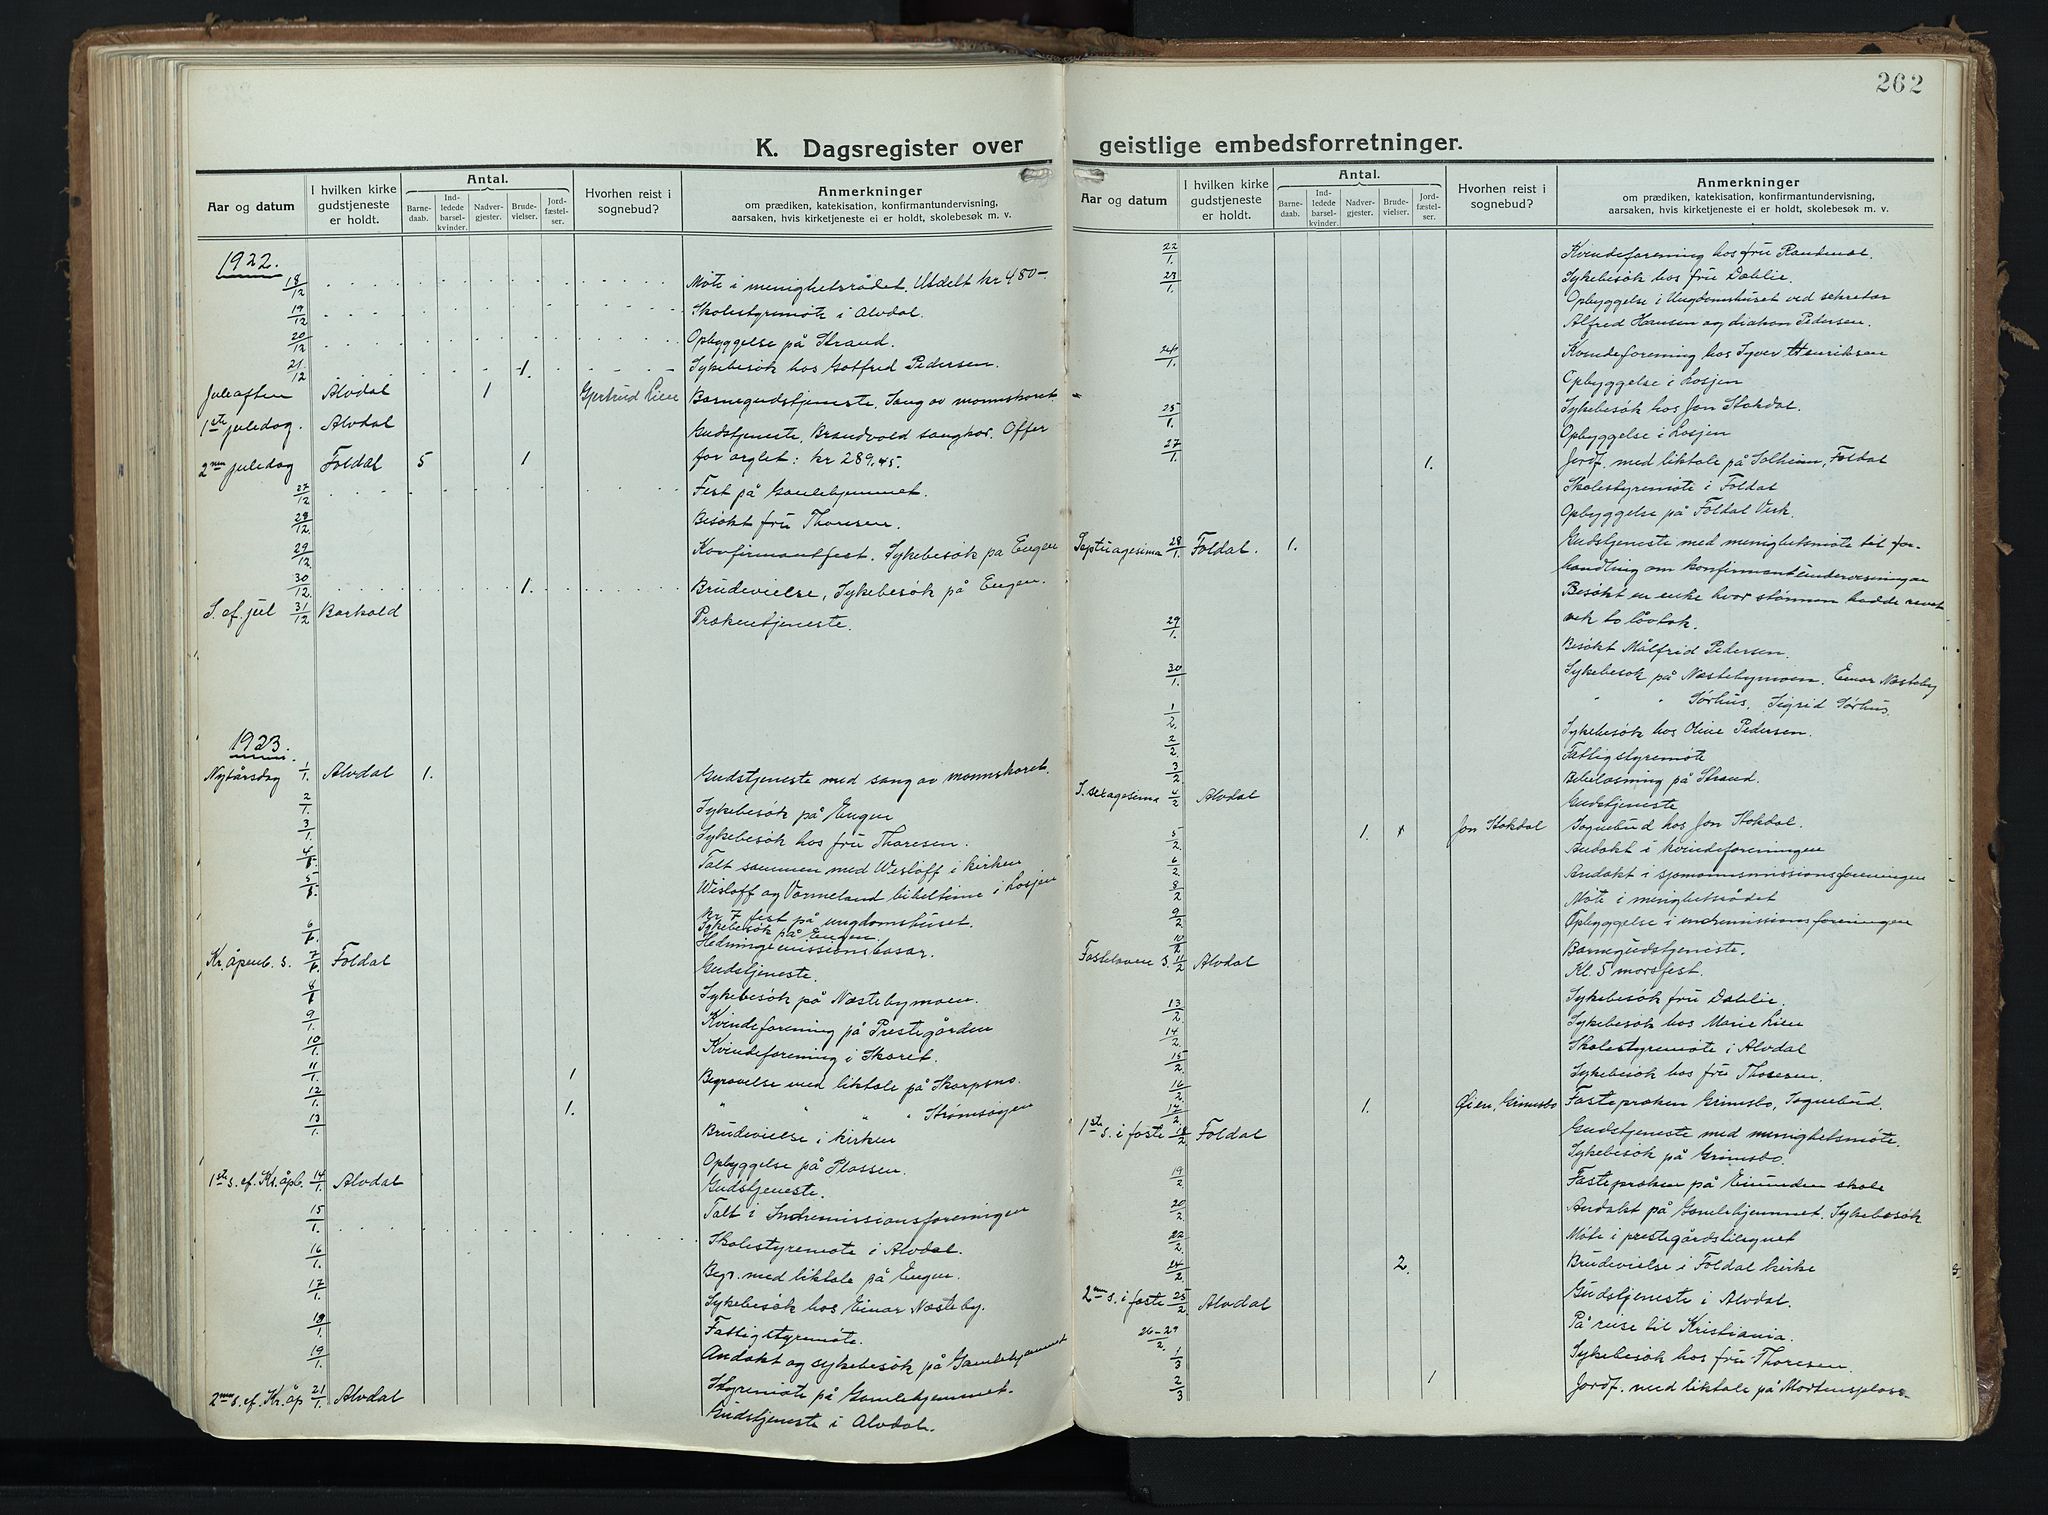 K. Dagsregister over
Aar og datum
I hvilken kirke gudstjeneste er holdt.
Antal.
Barne-daab.
Ind-ledede barsel-kvinder.
Nadver-gjester.
Brude-vielser.
Jord-fæstel-ser.
Hvorhen reist i sognebud?
Anmerkninger
om prædiken, katekisation, konfirmantundervisning, aarsaken, hvis kirketjeneste ei er holdt, skolebesøk m. v.
1922.
18/12 Møte i menighetsrådet. Utdelt kr 480-
19/12 Skolestyremöte i Alvdal.
20/12 Opbyggelse på Strand.
21/12 1. Sykebesök hos Gotfred Pedersen.
Juleaften Alvdal 1 Gjertrud Lien Barnegudstjeneste. Sang av mannskoret.
1ste juledag. Alvdal Gudstjeneste, Brandvold sangkor. Offer
2nen juledag Foldal 5 1 for orglet: kr 289,45.
27/12 Fest på Gamlehjemmet.
28/12 Besökt fru Thoresen.
29/12 Konfirmantfest. Sykebesök på Engen
30/12 1. Brudevielse, Sykebesök på Engen.
S. ef. jul 31/12 Barkald Prækentjeneste.
1923.
Nytårsdag 1/1. Alvdal 1. Gudstjeneste med sang av mannskoret.
2/1. Sykebesök på Engen
3/1. Sykebesök hos fru Thoresen.
4/1. Talt sammen med Wisløff i kirken
5/1. Wisløff og Vormeland bibeltime i Losjen
Nr 7 fest på ungdomshuset.
6/1. Sykebesök på Engen.
Hedningemissionsbasar.
Kr. åpenb. s. 7/1. Foldal Gudstjeneste.
8/1 Sykebesök på Næstebymoen.
9/1. Kvindeforening på Prestegården
10/1. Kvindeforening i Skoret.
11/1. 1 Begravelse med liktale på Skarpsno.
12/1. 1. " " " " Strømsøyen
13/1. Brudevielse i kirken
Opbyggelse på Plassen.
1ste s. ef. Kr. åpb. 14/1. Alvdal Gudstjeneste.
15/1. Talt i Indremissionsforeningen
Skolestyremöte i Alvdal.
16/1. Begr. med liktale på Engen.
17/1. Sykebesök hos Einar Næsteby.
18/1. Fattigstyremöte.
19/1. Andakt og sykebesök på Gamlehjemmet
Styremöte på Gamlehjemmet.
2nen s. ef. Kr. åp 21/1. Alvdal Gudstjeneste i Alvdal.
262
geistlige embedsforretninger.
Aar og datum
I hvilken kirke gudstjeneste er holdt.
Antal.
Barne-daab.
Ind-ledede barsel-kvinder.
Nadver-gjester.
Brude-vielser.
Jord-fæstel-ser.
Hvorhen reist i sognebud?
Anmerkninger
om prædiken, katekisation, konfirmantundervisning, aarsaken, hvis kirketjeneste ei er holdt, skolebesøk m. v.
22/1. Kvindeforening hos fru Randmæl.
23/1. Sykebesök hos fru Dahlie.
Opbyggelse i Ungdomshuset ved sekretær
Alfred Hansen og diakon Pedersen.
24/1. Kvindeforening hos Syver Henriksen
Opbyggelse i Losjen
25/1. Sykebesök hos Jon Stokdal.
Opbyggelse i Losjen
27/1. 1. Jordf. med liktale på Solheim, Foldal
Skolestyremöte i Foldal
Opbyggelse på Foldal Verk.
Septuagesima 28/1. Foldal. 1. Gudstjeneste med menighetsmöte til for-
handling om konfirmantundervisningen
Besökt en enke hvor stormen hadde revet
29/1. vek to låvtak.
Besökt Målfrid Pedersen.
30/1. Sykebesök på Næstebymoen. Einar Næsteby
" Sørhus. Sigrid Sørhus.
1/2. Sykebesök hos Oline Pedersen.
2/2 Fattigstyremöte
3/2 Bibellæsning på Strand.
S. sexagesima 4/2 Alvdal Gudstjeneste
5/2 1. Jon Stokdal Sognebud hos Jon Stokdal.
Andakt i kvindeforeningen
6/2 Andakt i sjømannsmissionsforeningen
8/2 Möte i menighetsrådet
9/2 Opbyggelse i indremissionsforeningen
10/2 Barnegudstjeneste.
Fastelaven s. 11/2 Alvdal Kl. 5 morsfest.
Sykebesök fru Dahlie.
13/2 Sykebesök hos Marie Lien
14/2. Skolestyremöte i Alvdal
15/2. Sykebesök hos fru Thoresen.
16/2 1. Øien, Grimsbo Fastepræken Grimsbo, Sognebud.
17/2
1ste s. i faste 18/2 Foldal Gudstjeneste med menighetsmöte.
Sykebesök på Grimsbo.
19/2 Fastepræken på Einunden skole
20/2. Andakt på Gamlehjemmet. Sykebesök
22/2. Möte i prestegårdstilsynet
24/2. 2. Brudevielse i Foldal kirke
2nen s. i faste 25/2. Alvdal Gudstjeneste i Alvdal.
26-29/2. På reise til Kristiania.
1/3 Sykebesök hos fru Thoresen.
2/3 1 Jordf. med liktale på Mortensplass